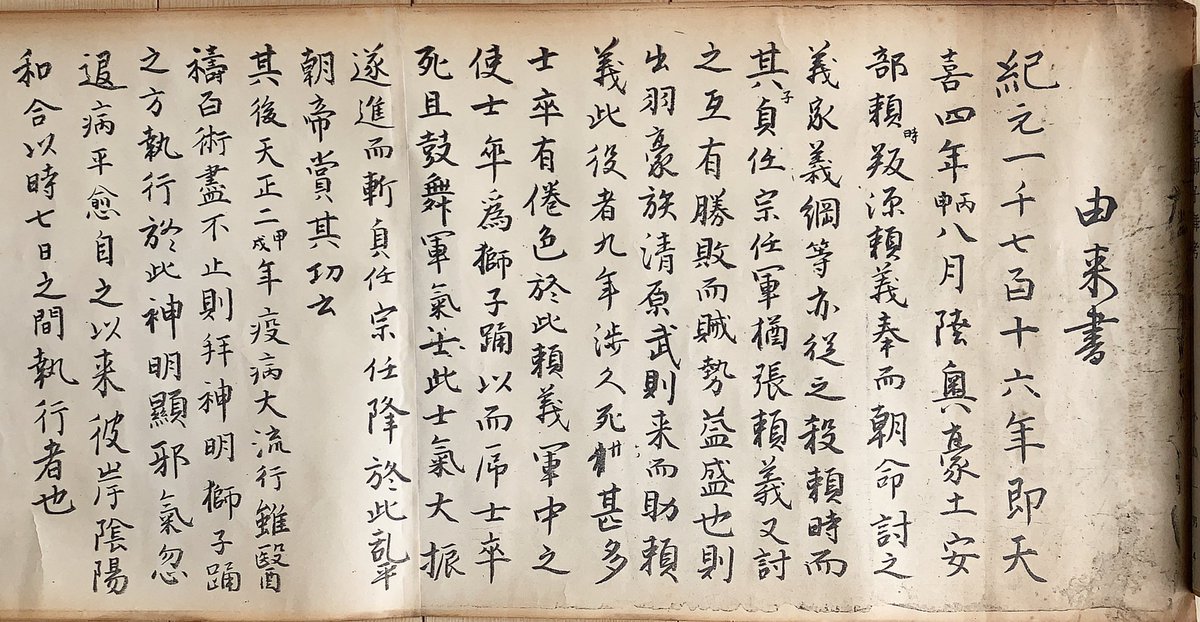 由来書
紀元一千七百十六年即天
喜四年丙申八月陸奥豪土安
部頼時叛源頼義奉而朝命討之
義家義綱等亦従之殺頼時而
其子貞任宗任軍猶張頼義又討
之互有勝敗而賊勢益盛也則
出羽豪族清原武則来而助頼
義此役者九年渉久死甚多
士卒有倦色於此頼義軍中之
使士卒為獅子踊以而士卒
死且鼓舞軍氣此士氣大振
遂進而斬貞任宗任降於此乱平
朝帝賞其功云
其後天正二甲戌年疫病大流行雖醫
禱百術盡不止則拜神明獅子踊
之方執行於此神明顯邪氣忽
退病平愈自之以来彼岸陰陽
和合以時七日之間執行者也